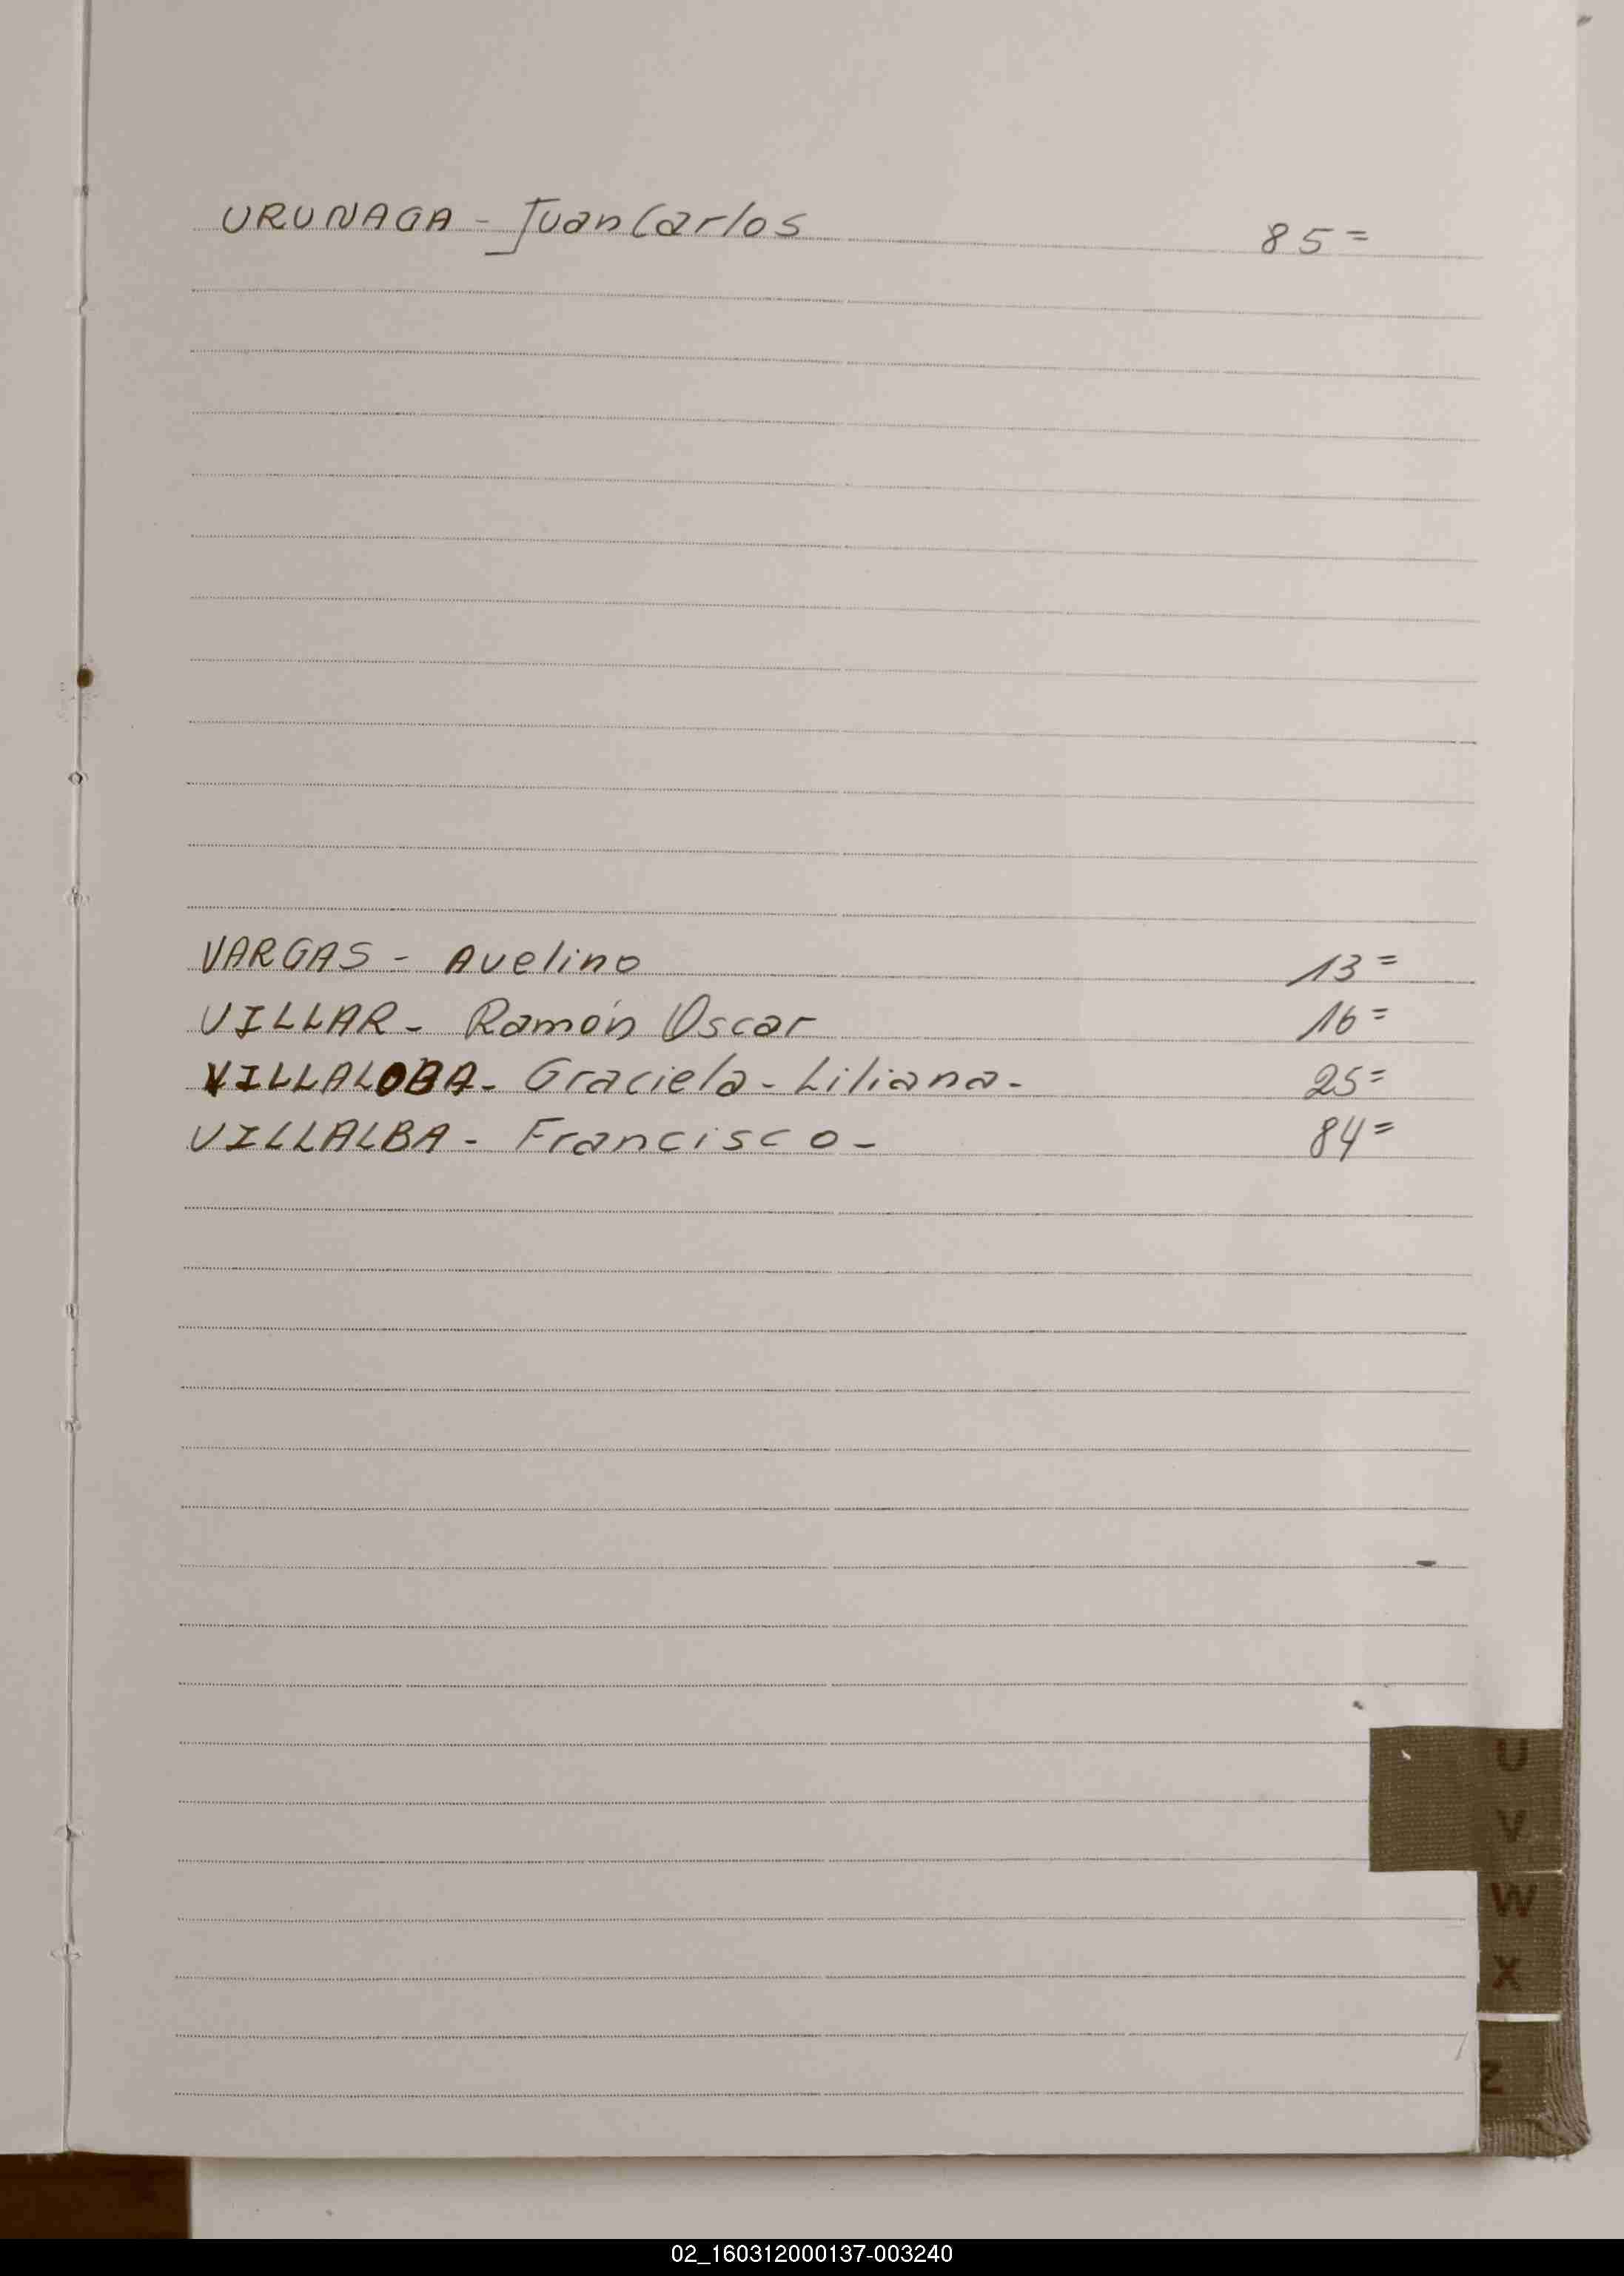 URUNAGA - Juan Carlos 85=
VARGAS - Avelino 13=
VILLAR - Ramón Oscar 16=
VILLALOBA - Graciela - Liliana - 25=
VILLALBA - Francisco - 84=
U
V
W
X
Z
02_160312000137-003240